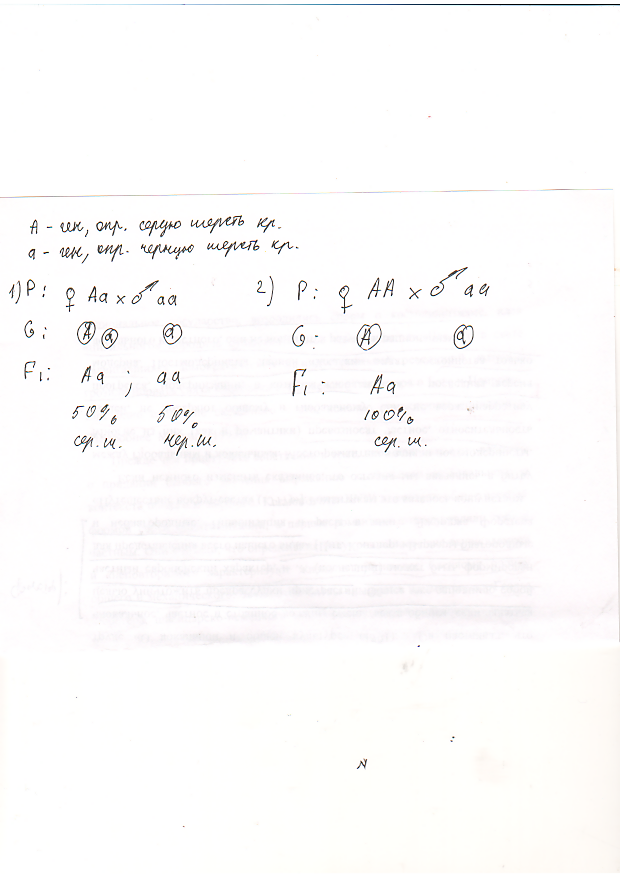 А - ген, опр. серую шерсть кр.
а - ген, опр. черную шерсть кр.
1) P: ♀ Aa x ♂ aa
G: A a a
F1: Aa ; aa
50% 50%
сер. ш. чер. ш.
2) P: ♀ AA x ♂ aa
G: A a
F1: Aa
100%
сер. ш.